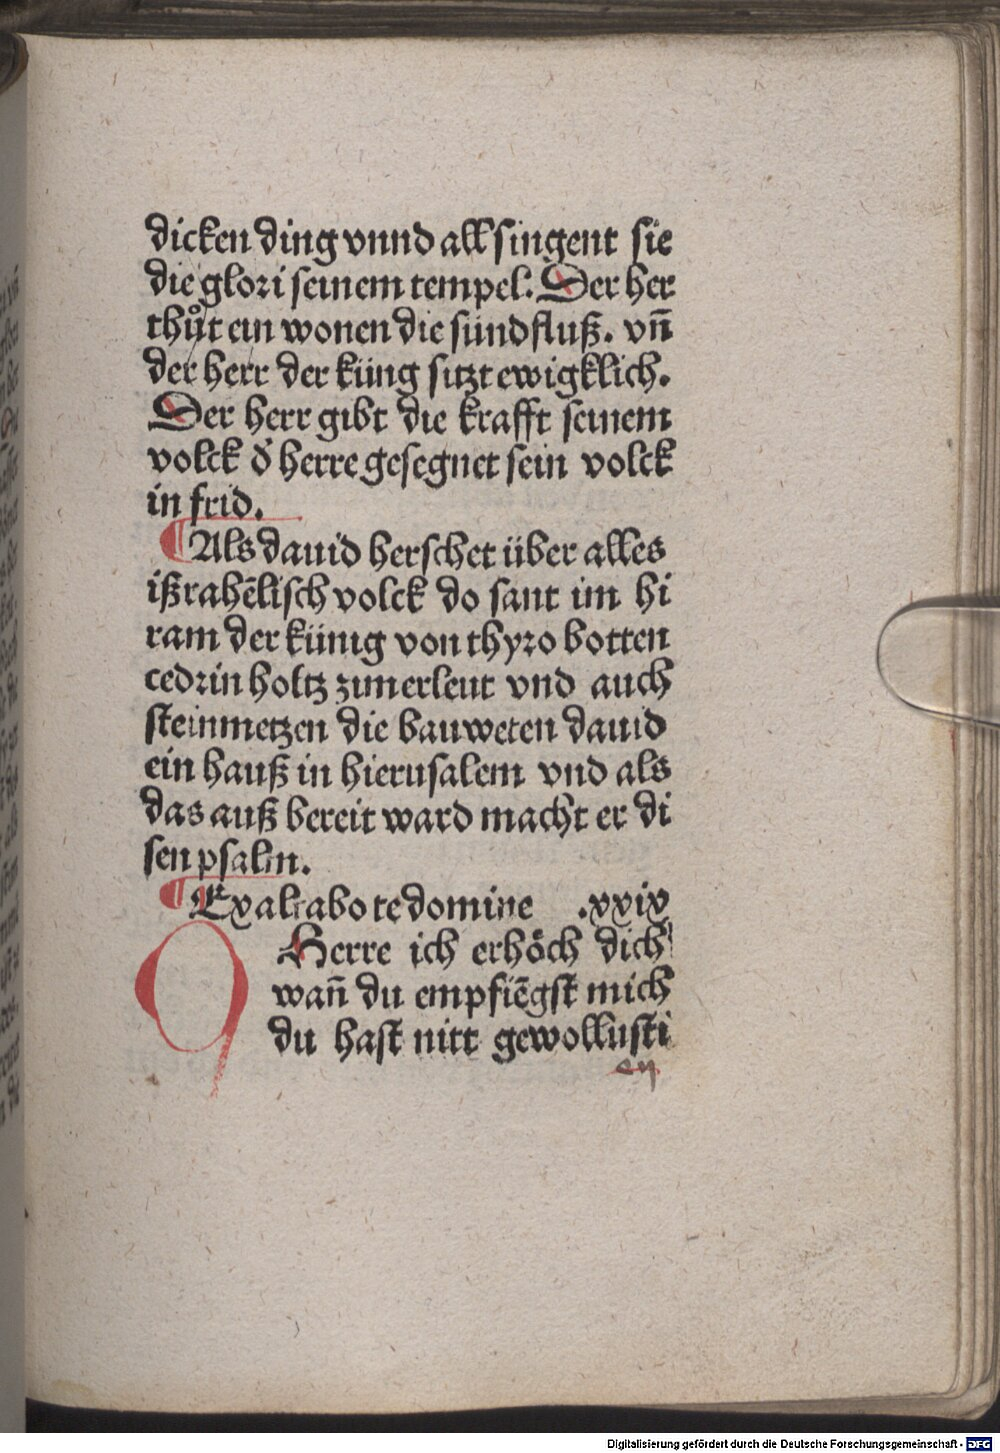 dicken ding vnnd all singent sie
die glori seinem tempel. Der her
thuͦt ein wonen die sündfluß. vn̄
der herr der küng sitzt ewigklich.
Der herr gibt die krafft seinem
volck d̕ herre gesegnet sein volck
in frid.
¶ Als dauid herschet über alles
ißrahēlisch volck do sant im hi
ram der künig von thyro botten
cedrin holtz zimerleut vnd auch
steinmetzen die bauweten dauid
ein hauß in hierusalem vnd als
das auß bereit ward macht er di
sen psalm.
¶ Exaltabo te domine .xxix
O Herre ich erhöch dich
wan̄ du empfiēgst mich
du hast nitt gewollusti
Digitalisierung gefördert durch die Deutsche Forschungsgemeinschaft - DFG